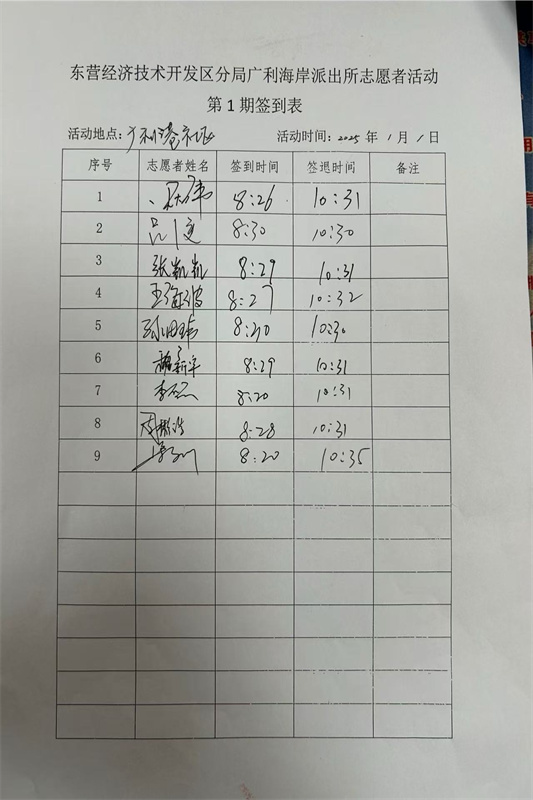 东营经济技术开发区分局广利海岸派出所志愿者活动
第1期签到表
活动地点：广利港社区 活动时间：2025 年 1 月 1 日
序号 志愿者姓名 签到时间 签退时间 备注
1 8:26 10:31
2 8:30 10:30
3 张凯凯 8:29 10:31
4 王海波 8:27 10:32
5 8:30 10:30
6 新军 8:29 10:31
7 李 8:20 10:31
8 周 8:28 10:31
9 8:20 10:35